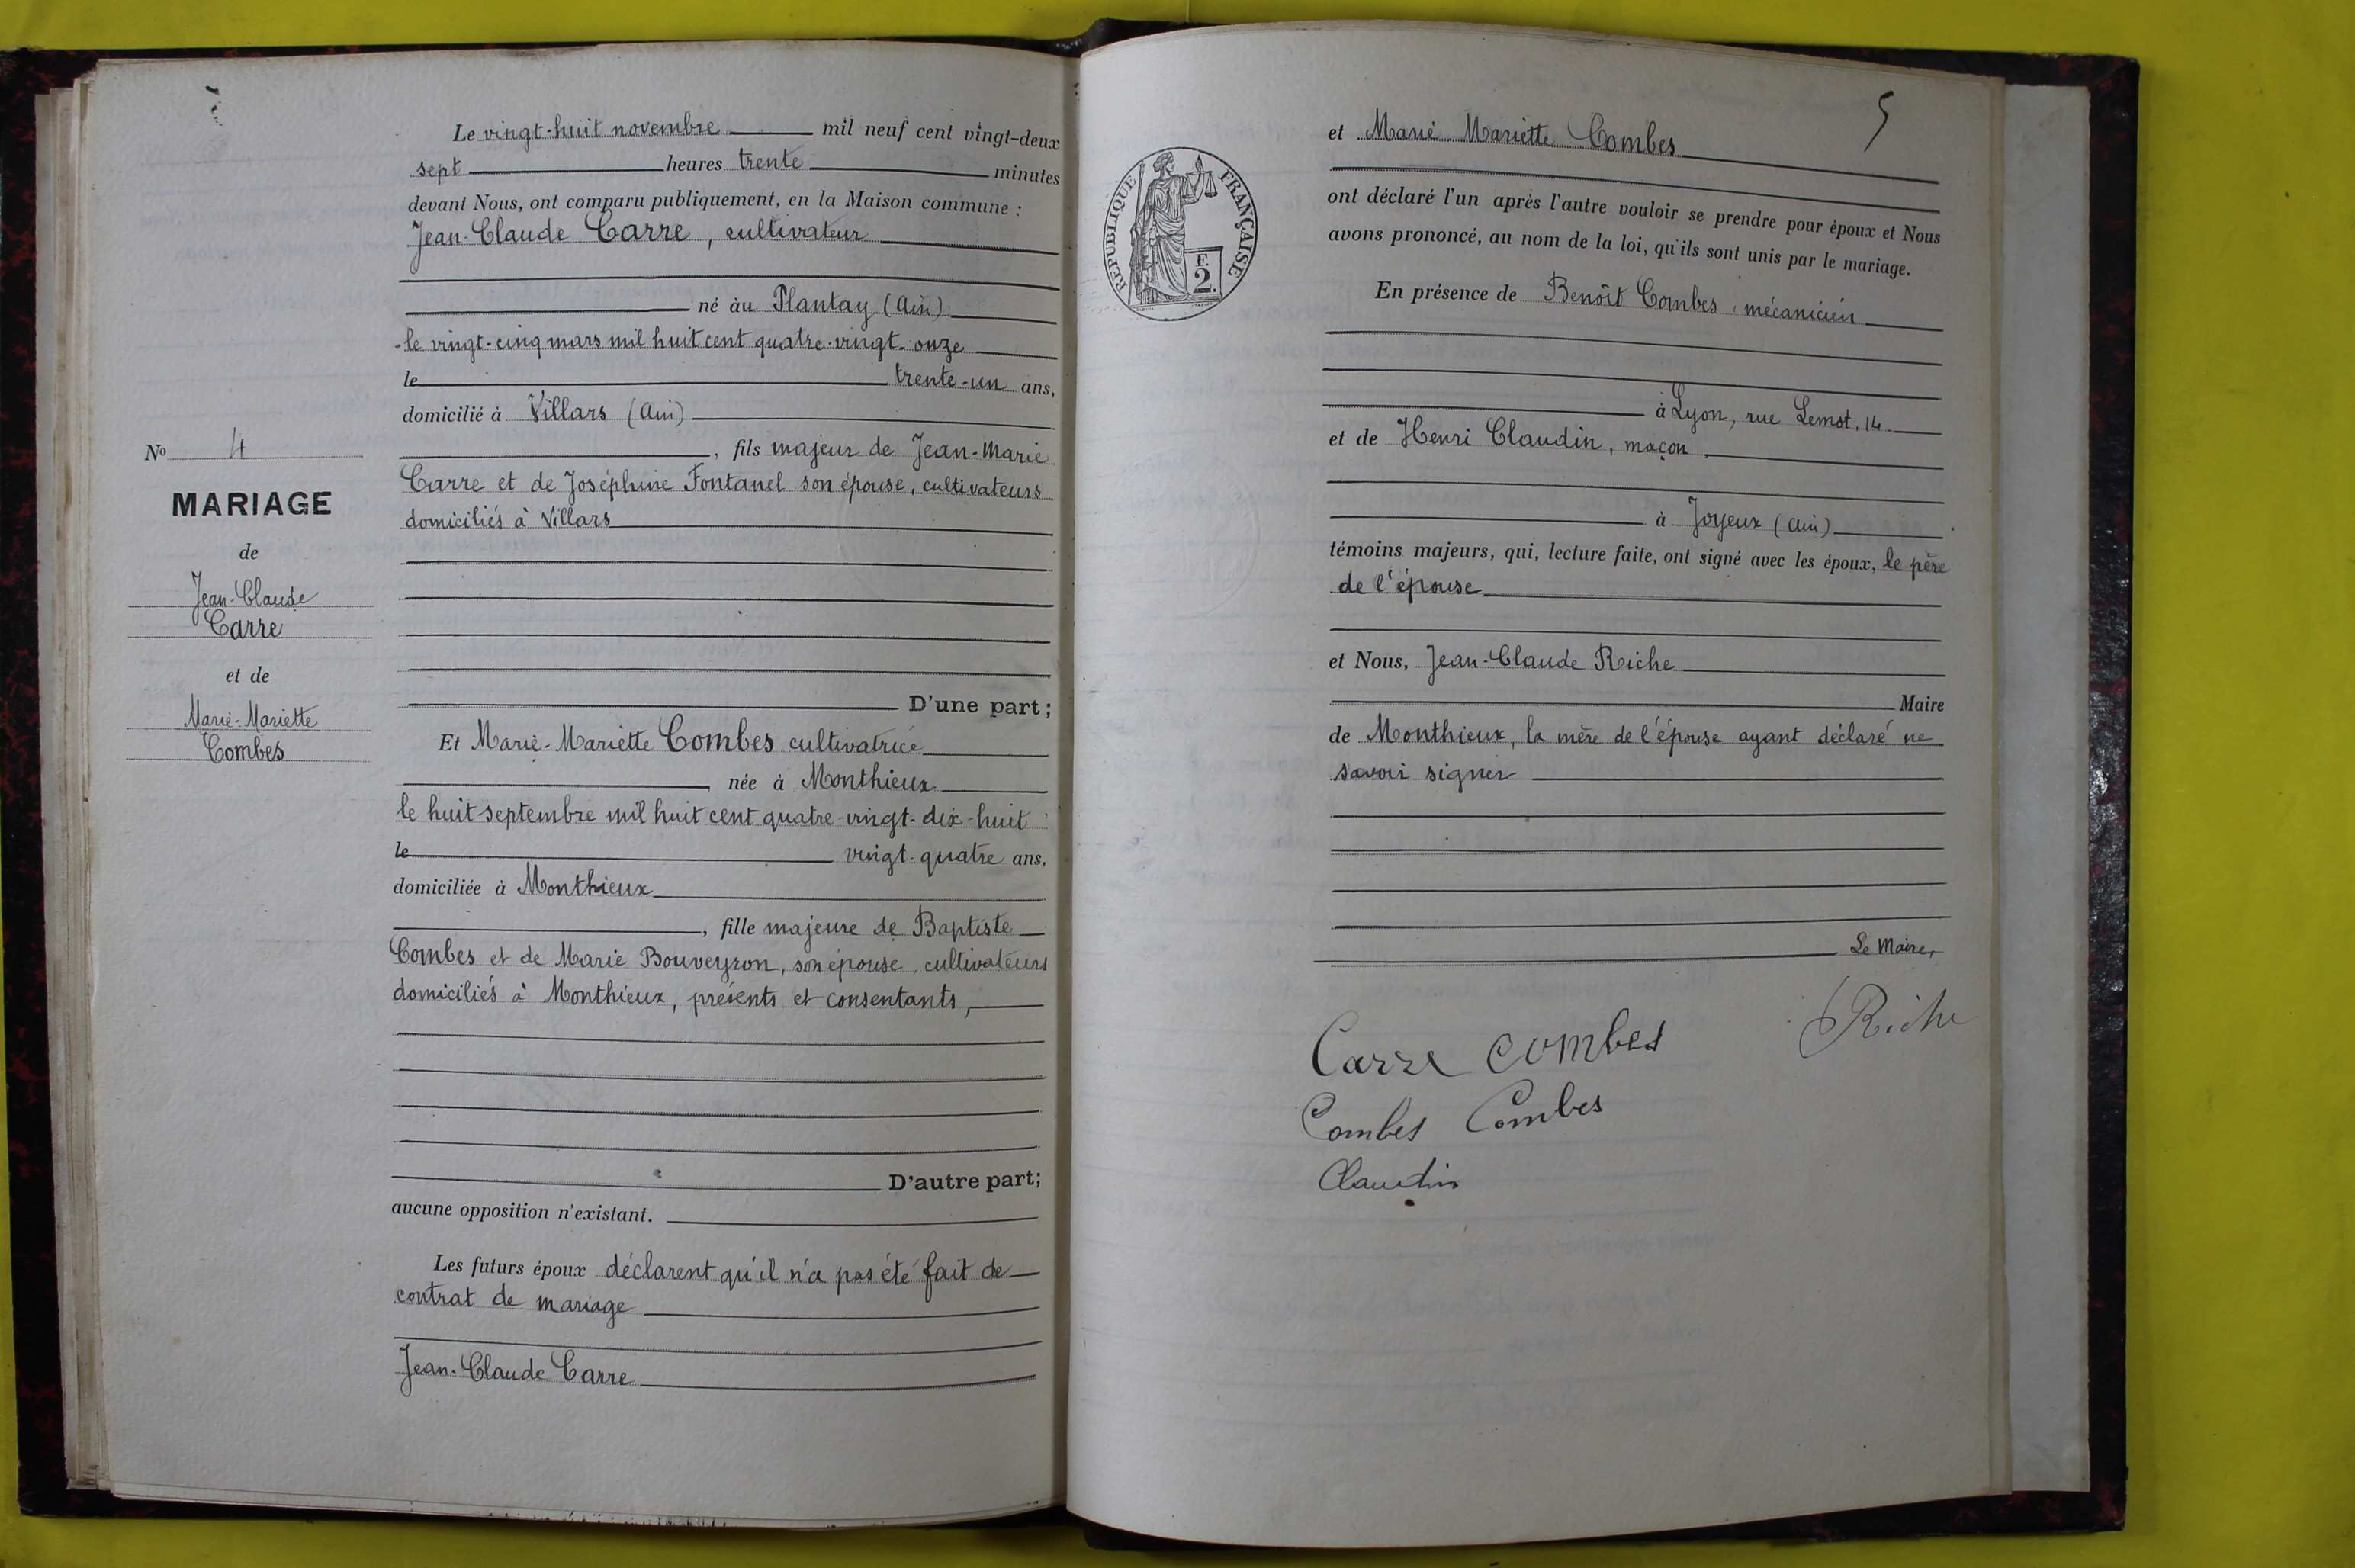 Le vingt-huit novembre mil neuf cent vingt-deux
sept heures trente minutes
devant Nous, ont comparu publiquement, en la Maison commune :
Jean-Claude Carre, cultivateur
né àu Plantay (Ain)
le vingt-cinq mars mil huit cent quatre-vingt-onze
le trente-un ans,
domicilié à Villars (Ain)
, fils majeur de Jean-Marie
Carre et de Joséphine Fontanel son épouse, cultivateurs
domiciliés à Villars
D'une part ;
Et Marie-Mariette Combes cultivatrice
, née à Monthieux
le huit septembre mil huit cent quatre-vingt-dix-huit
le vingt-quatre ans,
domiciliée à Monthieux
, fille majeure de Baptiste
Combes et de Marie Bouveyron, son épouse, cultivateurs
domiciliés à Monthieux, présents et consentants,
D'autre part;
aucune opposition n'existant.
Les futurs époux déclarent qu'il n'a pas été fait de
contrat de mariage
Jean-Claude Carre
No 4
MARIAGE
de
Jean-Claude
Carre
et de
Marie-Mariette
Combes
5
et Marie Mariette Combes
ont déclaré l'un après l'autre vouloir se prendre pour époux et Nous
avons prononcé, au nom de la loi, qu'ils sont unis par le mariage.
En présence de Benoît Combes, mécanicien
à Lyon, rue Lemot, 14
et de Henri Claudin, maçon
à Joyeux (Ain)
témoins majeurs, qui, lecture faite, ont signé avec les époux, le père
de l'épouse
et Nous, Jean-Claude Riche
Maire
de Monthieux, la mère de l'épouse ayant déclaré ne
savoir signer
Le Maire,
Carre Combes Riche
Combes Combes
Claudin
RÉPUBLIQUE FRANÇAISE
F.
2.